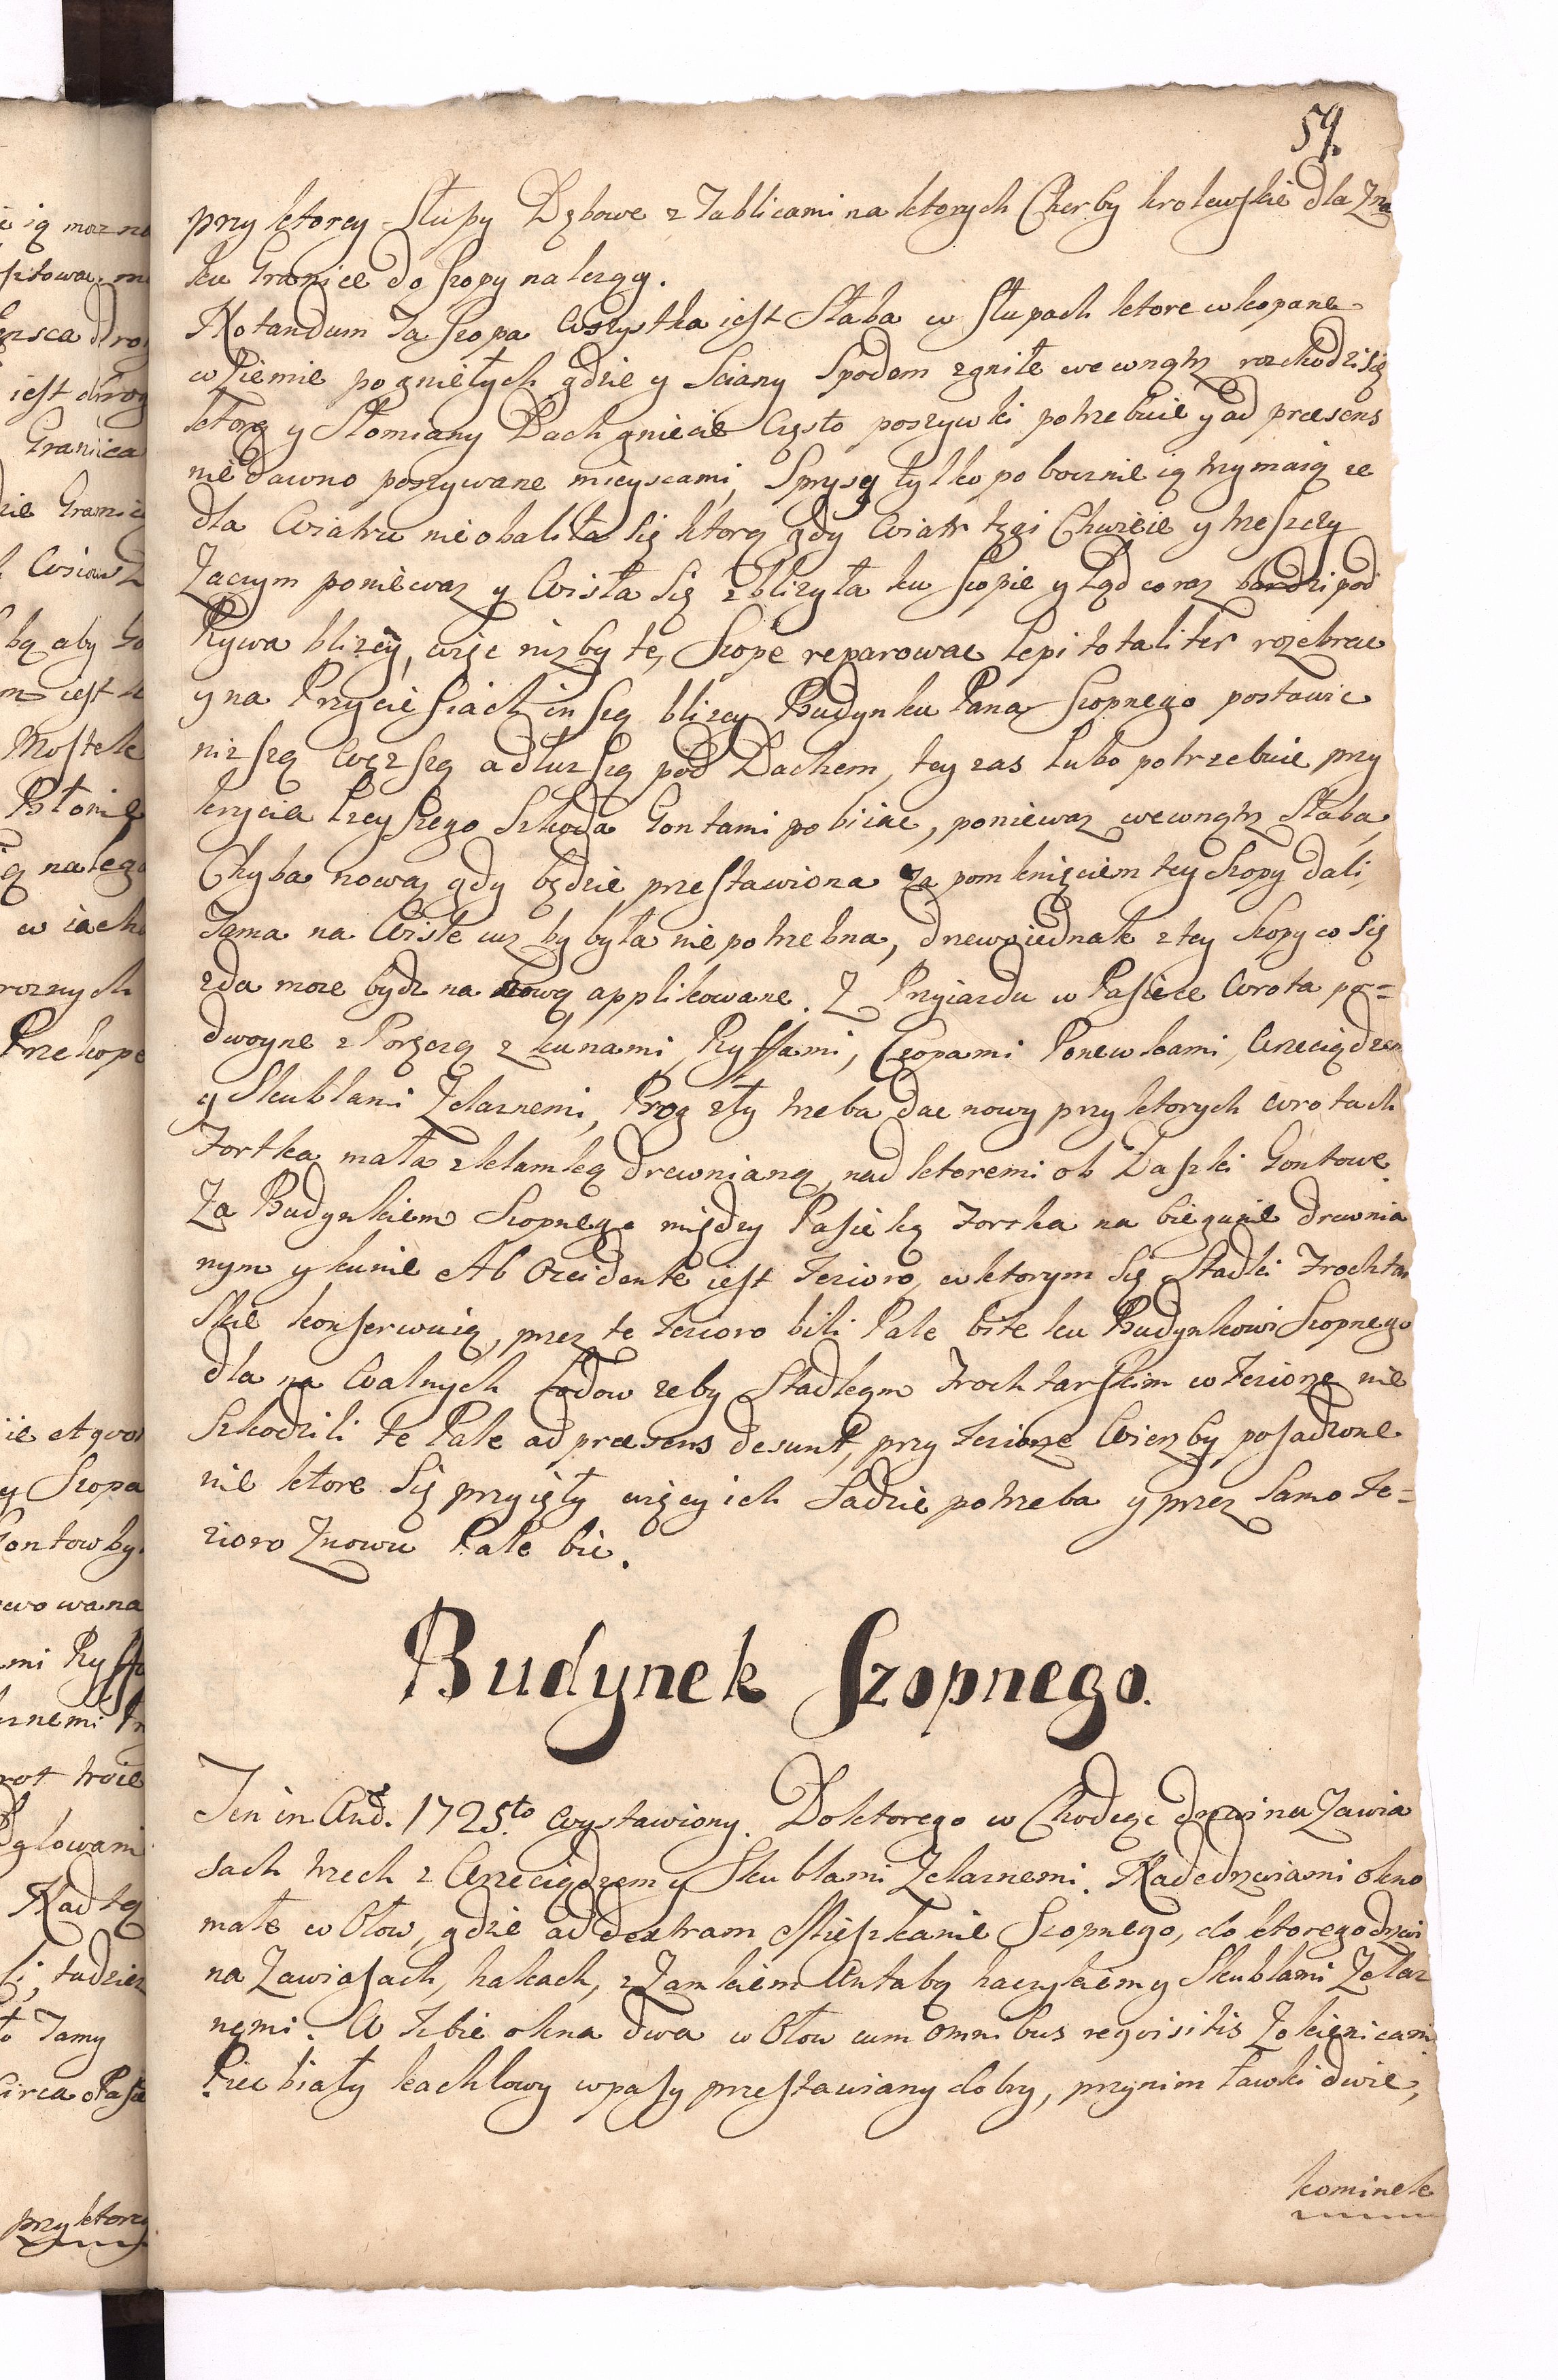 59.
przy ktorey Słupy Dębowe z Tablicami na ktorych Cherby krolewskie dla Zna
ku Granice do szopy nalezący.
Notandum Ta szopa wszystka iest Słaba w Słupach ktore wkopane
w Ziemie pogniełych gdzie y Sciany Spodem zgniłe wewnątrz rozchodzi się
ktorą y Słomiany Dach gniecie często poszywki potrzebuie y ad præsens
nie dawno poszywane mieyscami, Sprysy tylko pobocznie ią trzymaią ze
dla Wiatru nie obaliła się ktorą gdy Wiatr tęgi Chwieie y trzeszczy
Zaczym poniewaz y Wisła się zblizyła ku szopie y Ląd coraz bardzi pod
Rywa blizey, więc nizby tę Szope reparowac lepi totaliter rozebrac
y na Przyciesiach inszą blizey Budynku Pana Szopnego postawic
nizszą węzszą a dłuzszą pod Dachem, tey zas Lubo potrzebuie przy
krycia Lzeyszego Szkoda Gontami pobiiac, poniewaz wewnątrz Słaba,
Chyba nową gdy będzie przestawiona za pomknięciem tey Szopy dali,
Tama na Wisłe iuz by była nie potrzebna, drzewo iednak z tey szopy co się
zda moze bydz na nową applikowane. Z Przyiazdu w Pasiece Wrota po=
dwoyne z Poręczą z kunami, Ryffami, Czopami Ponewkami, Wrzeciądzem
y Skublami Zelaznemi, Prog zły trzeba dac nowy przy ktorych wrotach
Fortka mała z klamką drewnianą, nad ktoremi ob Daszki Gontowe.
Za Budynkiem Szopnego między Pasieką Fortka na biegunie drewnia
nym y kunie Ab Occidente iest Jezioro, w ktorym się Stadki Frochtar
skie konserwuią, przez te Jezioro bili Pale bite ku Budynkowi Szopnego
dla na Walnych Lodow zeby Stadkom Frochtarskim w Jeziorze nie
Szkodzili te Pale ad præsens desunt, przy Jeziorze Wierzby posadzone
nie ktore się przyięły więcy ich Sadzic potrzeba y przez Samo Je=
zioro Znowu Pale bic.
Budynek Szopnego.
Ten in And. 1725to wystawiony. Do ktorego w Chodząc drzwi na Zawia
sach trzech z Wrzeciądzem y Skublami Zelaznemi. Nade drzwiami okno
małe w Ołow, gdzie ad dextram Mieszkanie Szopnego, do ktorego drzwi
na Zawiasach, hakach, z Zamkiem Antabą haczykiem y Skublami Zelaz
nemi. W Izbie okna dwa w Ołow cum omnibus requisitis Z okienicami
Piec biały kachlowy w pasy przestawiany dobry, przy nim ławki dwie,
kominek